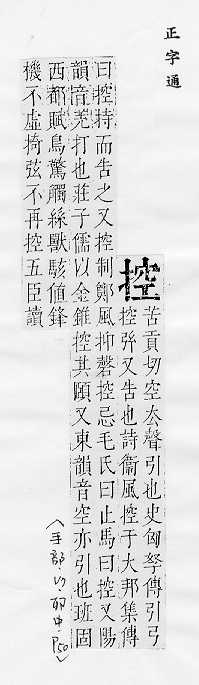 正字通
控
苦貢切空去聲引也史匈奴傳引弓
控弦又告也詩衞風控于大邦集傳
曰控持而告之又控制鄭風抑磬控忌毛氏曰止馬曰控又陽
韻音羌打也莊子儒以金錐控其頤又東韻音空亦引也班固
西都賦鳥驚觸絲獸駭值鋒
機不虛掎弦不再控五臣讀
(手部 中 P50)